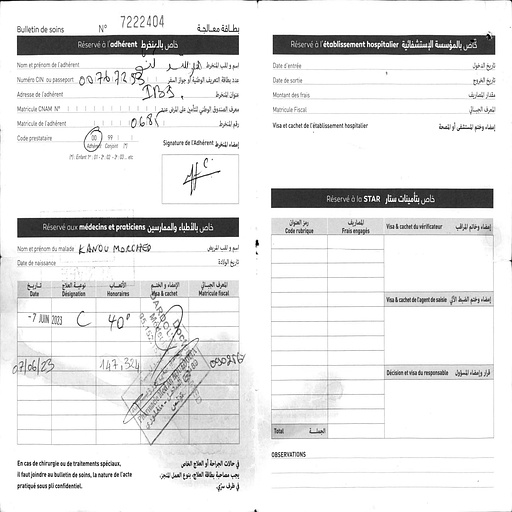 Bulletin de soins N° 7222404 بطاقة معالجة
Réservé à l'adhérent خاص بالمنخرط
Nom et prénom de l'adhérent إسم و لقب المنخرط
Numéro CIN ou passeport 00767253 عدد بطاقة التعريف الوطنية أو جواز السفر
Adresse de l'adhérent IBS. عنوان المنخرط
Matricule CNAM N°
Matricule de l'adhérent 0685 رقم المنخرط
Code prestataire 00 99
Adhérent Conjoint (*)
(*): Enfant 1er : 01 - 2è : 02 - 3è : 03 ... etc
Signature de l'Adhérent إمضاء المنخرط
Réservé aux médecins et praticiens خاص بالأطباء والممارسين
Nom et prénom du malade KANOU MORCHED إسم و لقب المريض
Date de naissance تاريخ الولادة
تاريخ Date نوعية العلاج Désignation الأتعاب Honoraires الإمضاء و الختم Visa & cachet المعرف الجبائي Matricule fiscal
-7 JUIN 2023 C 40D
07/06/23 147,324
En cas de chirurgie ou de traitements spéciaux,
il faut joindre au bulletin de soins, la nature de l'acte
pratiqué sous pli confidentiel.
في حالات الجراحة أو العلاج الخاص
يجب مصاحبة بطاقة العلاج، بنوع العمل المنجز،
في ظرف سرّي.
Réservé à l'établissement hospitalier خاص بالمؤسسة الإستشفائية
Date d'entrée تاريخ الدخول
Date de sortie تاريخ الخروج
Montant des frais مقدار المصاريف
Matricule Fiscal المعرف الجبائي
Visa et cachet de l'établissement hospitalier إمضاء وختم المستشفى أو المصحة
Réservé à la STAR خاص بتأمينات ستار
رمز العنوان Code rubrique المصاريف Frais engagés Visa & cachet du vérificateur إمضاء وخاتم المراقب
Visa & cachet de l'agent de saisie إمضاء وختم الضبط الآلي
Décision et visa du responsable قرار وإمضاء المسؤول
Total الجملة
OBSERVATIONS